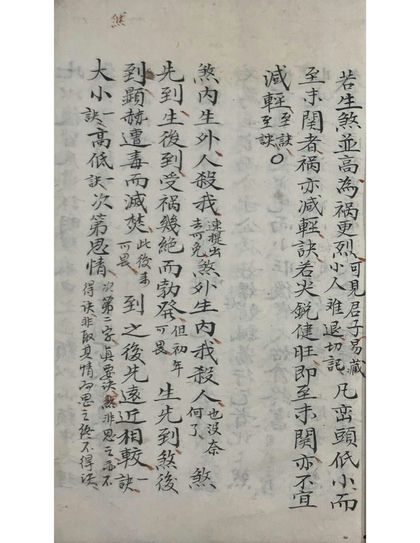 煞
若生煞並高為禍更烈可見君子易藏小人難退切記凡巒頭低小而
至未関者禍亦減輕訣若尖銳健旺即至未関亦不宜
減輕至訣至訣○
煞內生外人殺我速搬出去可免煞外生內我殺人也没奈何了煞
先到生後到受禍幾絕而勃發但初年可畏生先到煞後
到顯赫遭毒而滅焚此後来可畏到之後先遠近相較一訣
大小一訣高低一訣次第思情次第二字真要訣然非思之而不得訣非取其情而思之終不得訣